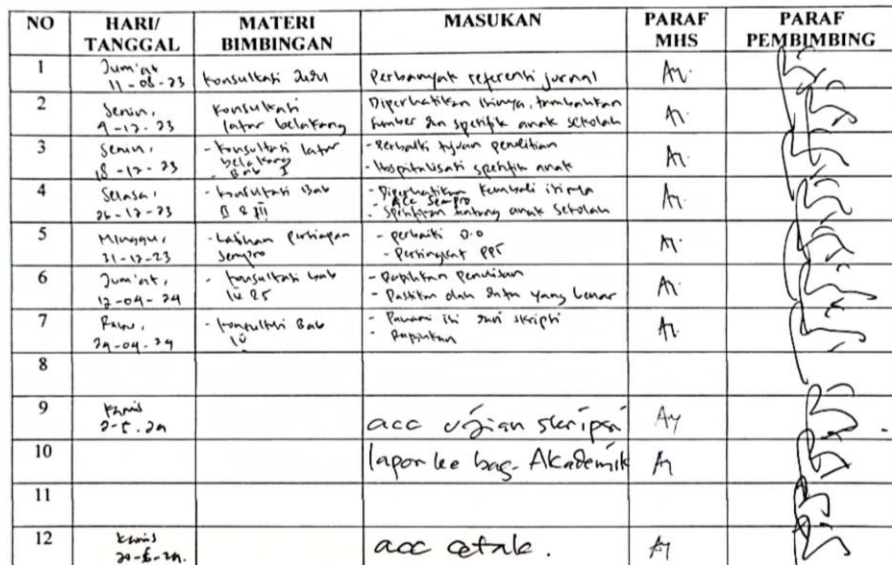 NO HARI/ TANGGAL MATERI BIMBINGAN MASUKAN PARAF MHS PARAF PEMBIMBING
1
Jum'at
11-08-23
Konsultasi Judul
Perbanyak referensi jurnal
2
Senin,
4-12-23
Konsultasi
latar belakang
Diperhatikan isinya, tambahkan
sumber dan spesifik anak sekolah
3
Senin,
18-12-23
- Konsultasi latar
belakang
- Bab I
- Perbaiki tujuan penelitian
- Hospitalisasi spesifik anak
4
Selasa,
26-12-23
- Konsultasi Bab
II & III
- Diperhatikan kembali isinya
- Acc Sempro
- Spesifikan tentang anak sekolah
5
Minggu,
31-12-23
- Latihan persiapan
sempro
- perbaiki D.O
- Persingkat PPT
6
Jum'at,
12-04-24
- Konsultasi bab
- Rapihkan penulisan
- Pastikan olah data yang benar
7
Rabu,
24-04-24
- Konsultasi Bab
- Pahami isi dari skripsi
- Rapihkan
8
9
Kamis
2-5-24
acc ujian skripsi
10
lapor ke bag. Akademik
11
12
Kamis
acc cetak.